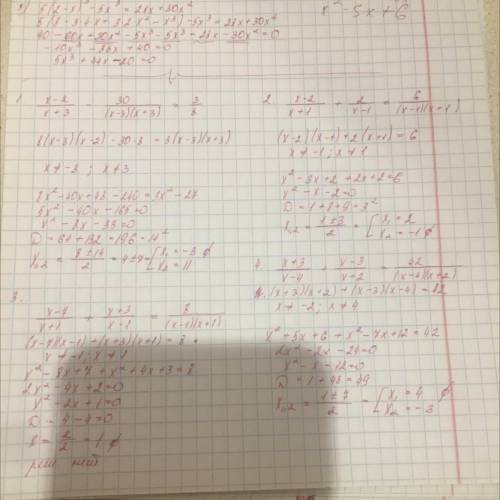 x² - 5x + 6
5x³ + 44x - 20 = 0
1.
(x-2)/(x+3) - 30/((x-3)(x+3)) = 3/8
8(x-3)(x-2) - 30·8 = 3(x-3)(x+3)
x ≠ -3; x ≠ 3
8x² - 40x + 48 - 240 = 3x² - 27
5x² - 40x - 165 = 0
x² - 8x - 33 = 0
D = 64 + 132 = 196 = 14²
x₁,₂ = (8 ± 14)/2 = 4 ± 7 = [x₁ = -3 ∅
x₂ = 11
2
(x-2)/(x+1) + 2/(x-1) = 6/((x-1)(x+1))
(x-2)(x-1) + 2(x+1) = 6
x ≠ -1; x ≠ 1
x² - 3x + 2 + 2x + 2 = 6
x² - x - 2 = 0
D = 1 + 8 = 9 = 3²
x₁,₂ = (1 ± 3)/2 = [x₁ = 2
x₂ = -1 ∅
3.
(x-7)/(x+1) + (x+3)/(x-1) = 8/((x-1)(x+1))
(x-7)(x-1) + (x+3)(x+1) = 8
x ≠ -1; x ≠ 1
x² - 8x + 7 + x² + 4x + 3 = 8
2x² - 4x + 2 = 0
x² - 2x + 1 = 0
D = 4 - 4 = 0
x = 2/2 = 1 ∅
реш нет
4.
(x+3)/(x-4) + (x-3)/(x+2) = 42/((x-4)(x+2))
(x+3)(x+2) + (x-3)(x-4) = 42
x ≠ -2; x ≠ 4
x² + 5x + 6 + x² - 7x + 12 = 42
2x² - 2x - 24 = 0
x² - x - 12 = 0
D = 1 + 48 = 49
x₁,₂ = (1 ± 7)/2 = [x₁ = 4 ∅
x₂ = -3